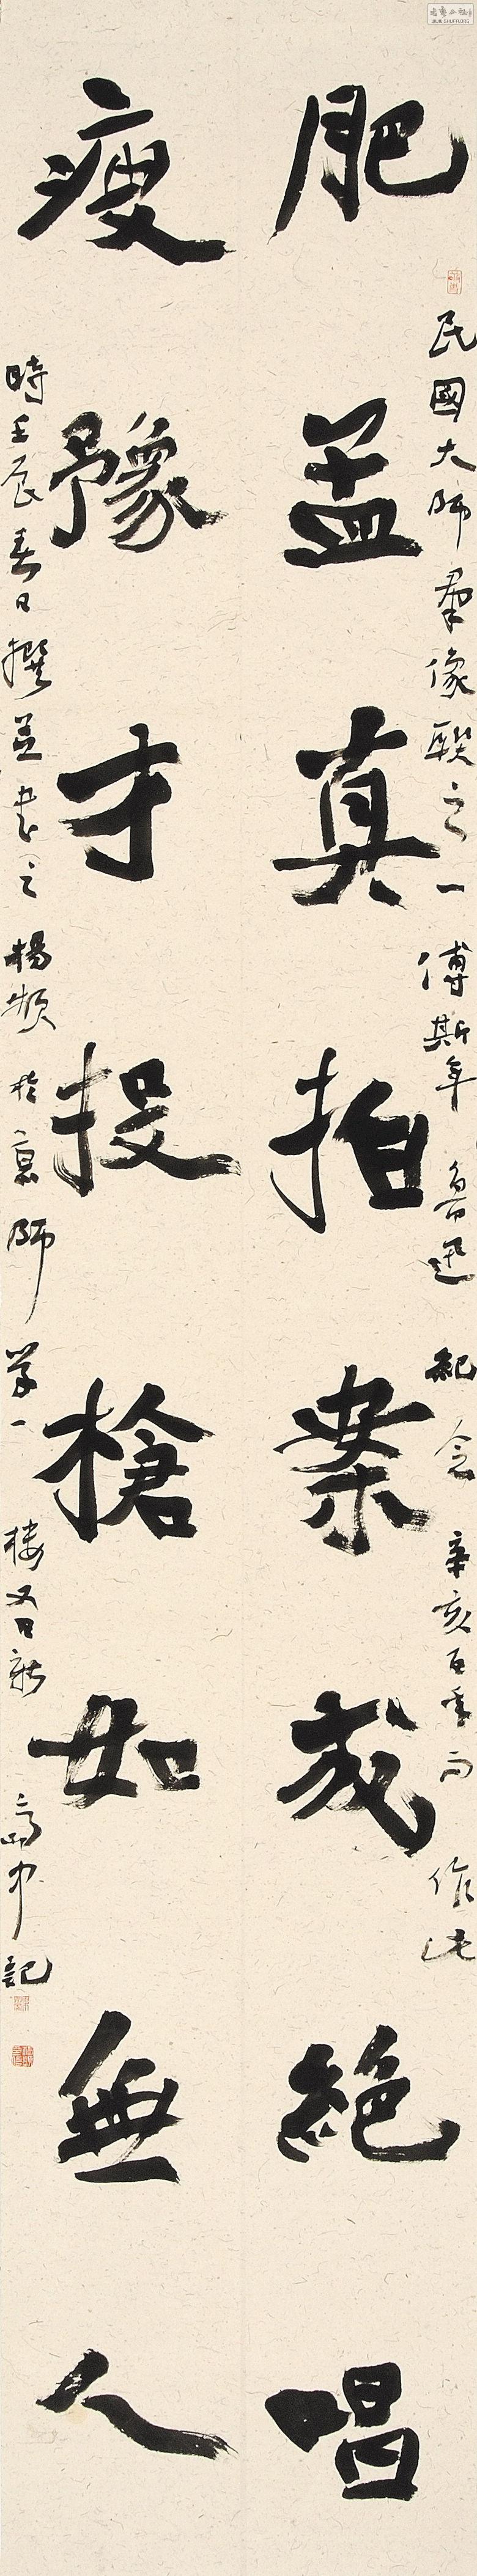 民國大師羣像聯之一傅斯年魯迅紀念辛亥百年而作此
肥孟真拍案成絕唱
瘦豫才投槍如無人
時壬辰春日撰並書之楊頻於京師學一樓又日新齋中記